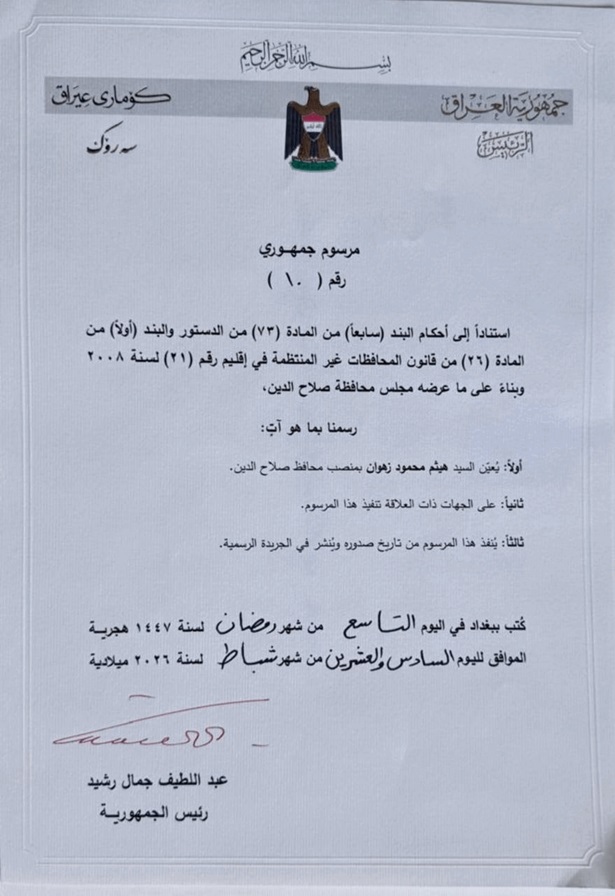 بسم الله الرحمن الرحيم
جمهورية العراق
كۆماری عیراق
الرئيس
سەرۆک
الله أكبر
مرسوم جمهـوري
رقم ( ١٠ )
استناداً إلى أحكام البند (سابعاً) من المادة (٧٣) من الدستور والبند (أولاً) من
المادة (٢٦) من قانون المحافظات غير المنتظمة في إقليم رقم (٢١) لسنة ٢٠٠٨
وبناءً على ما عرضه مجلس محافظة صلاح الدين،
رسمنا بما هو آتٍ:
أولاً: يُعيّن السيد هيثم محمود زهوان بمنصب محافظ صلاح الدين.
ثانياً: على الجهات ذات العلاقة تنفيذ هذا المرسوم.
ثالثاً: يُنفذ هذا المرسوم من تاريخ صدوره ويُنشر في الجريدة الرسمية.
كُتب ببغداد في اليوم التاسع من شهر رمضان لسنة ١٤٤٧ هجريـة
الموافق لليوم السادس والعشرين من شهر شباط لسنة ٢٠٢٦ ميلادية
عبد اللطيف جمال رشيد
رئيس الجمهوريـة